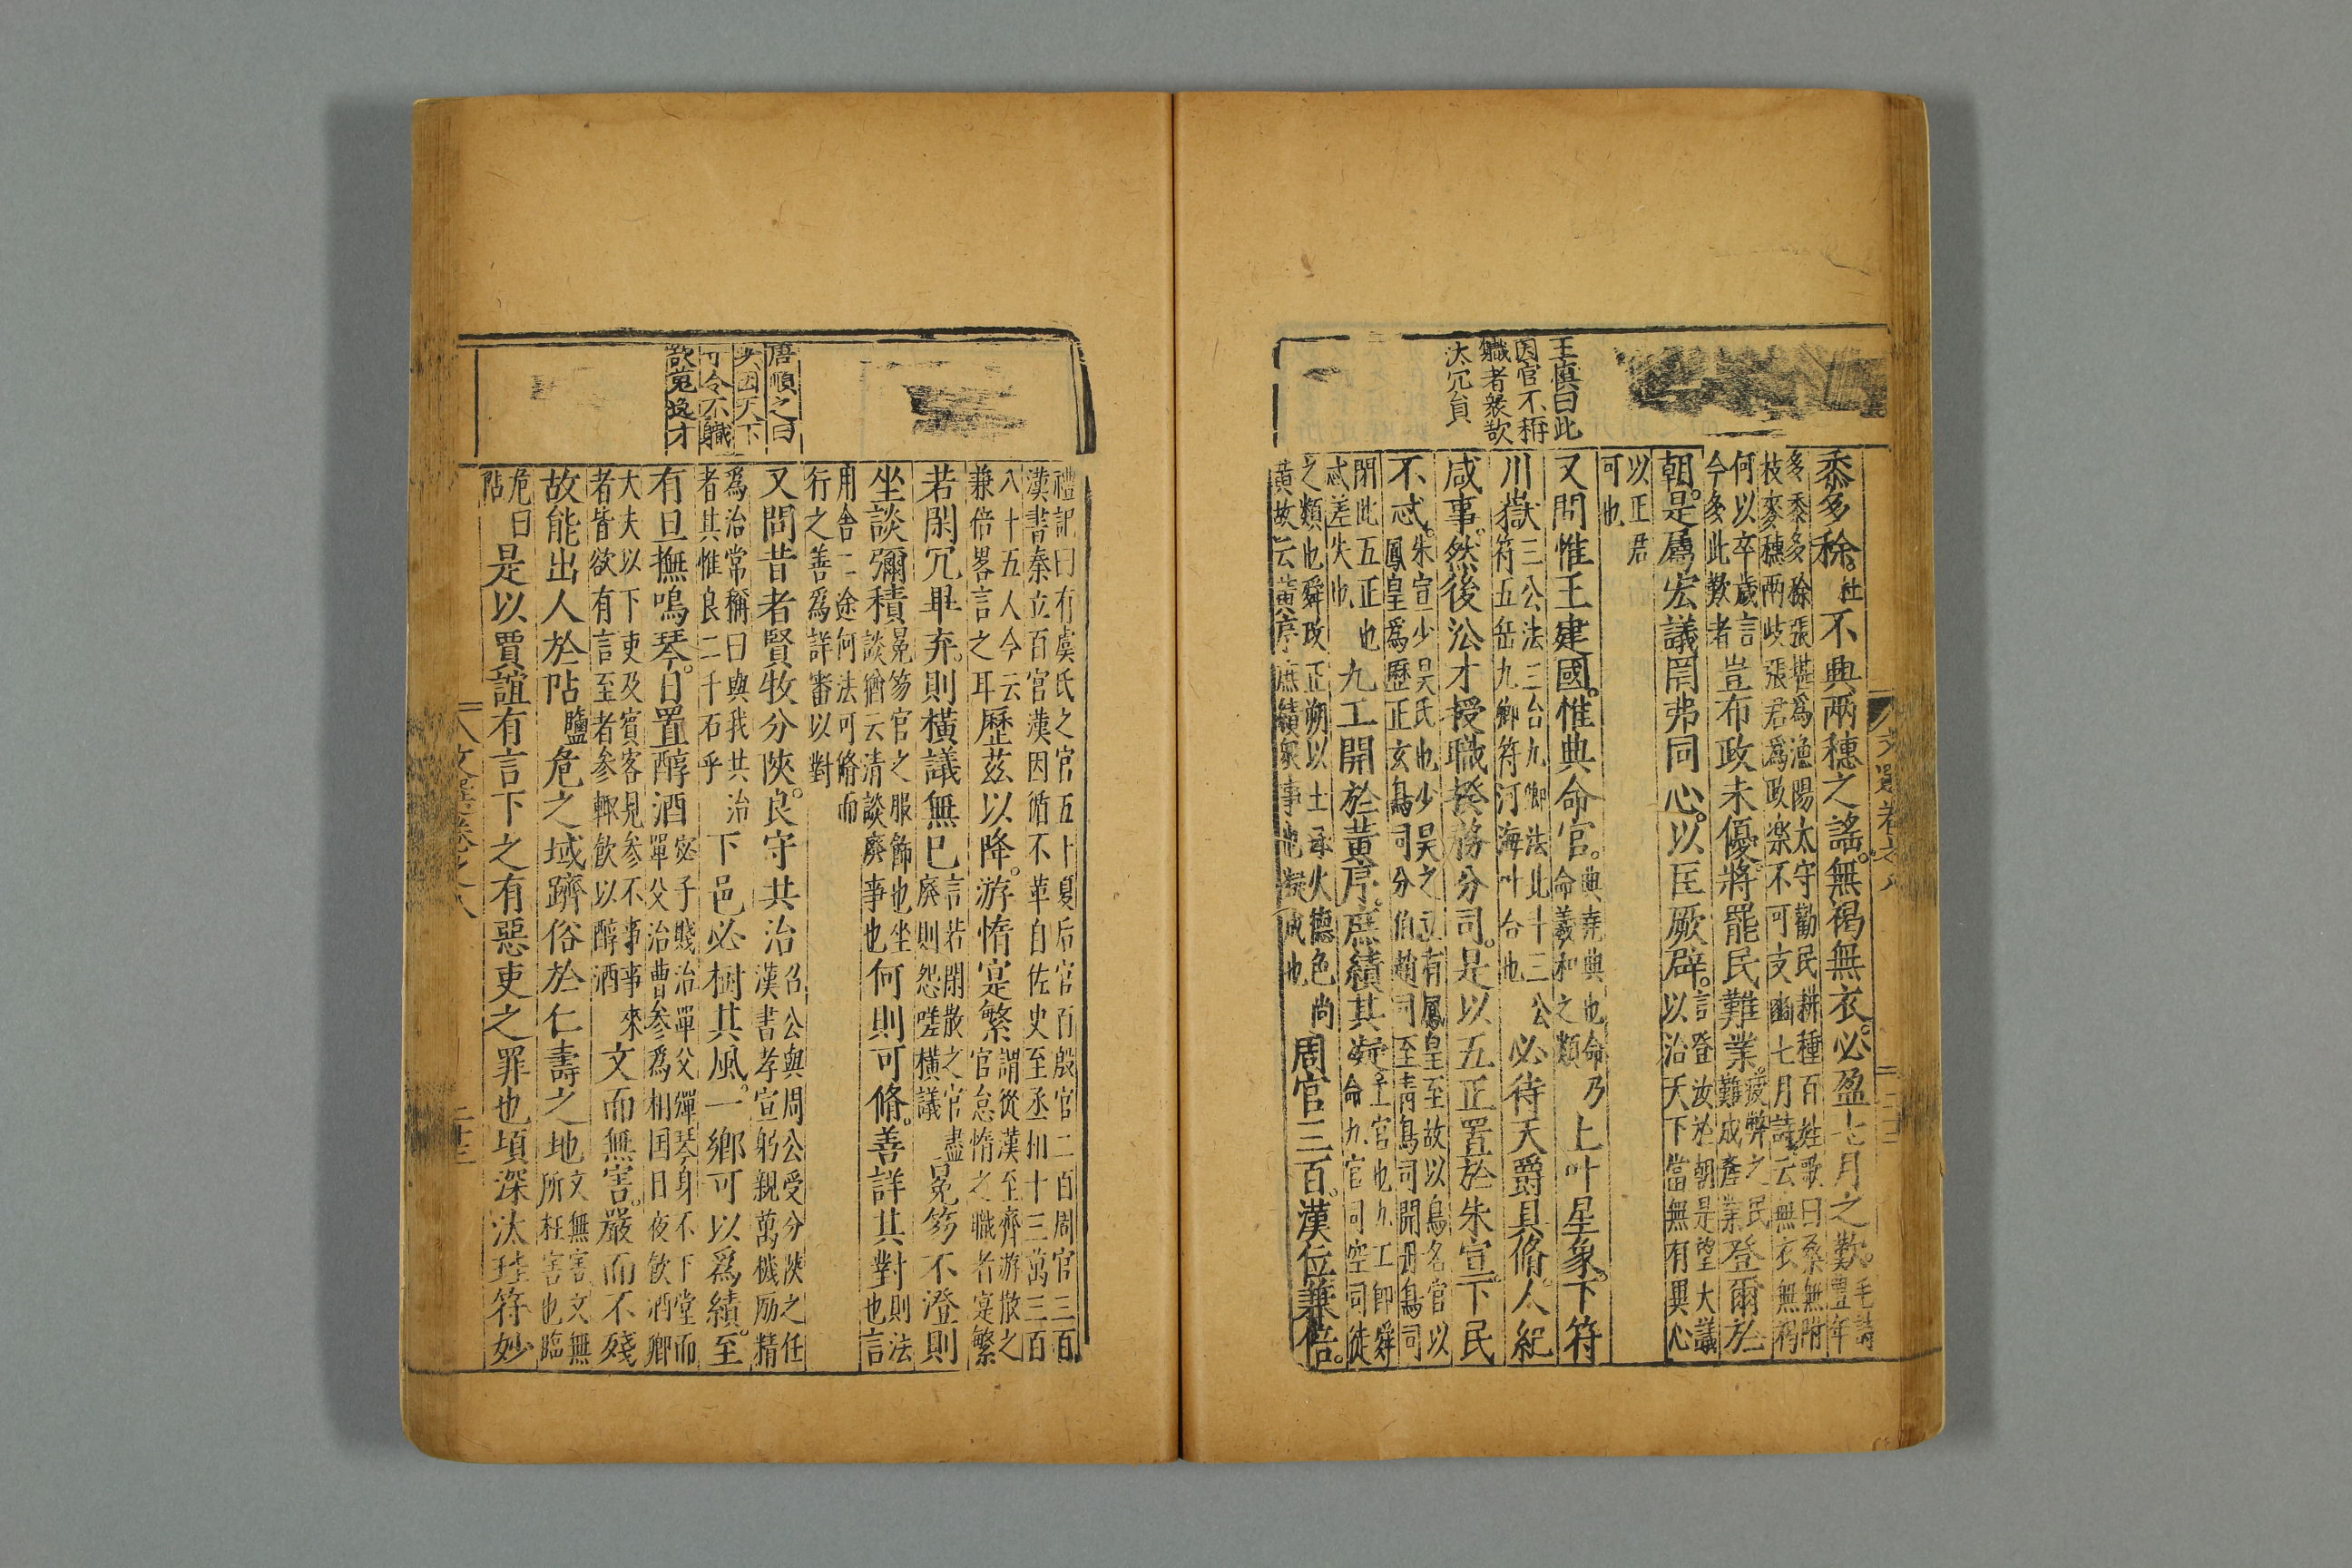 王慎曰此
因官不稱
職者發歎
汰冗員
黍多稌。杜 不興兩穗之謠。無褐無衣。必盈七月之歎。毛詩豐年
多黍多稌張堪為漁陽太守勸民耕種百姓歌曰桑無附
枝麥穗兩岐張君爲政樂不可支豳七月詩云無衣無褐
何以卒歲言
今多此歎者 豈布政未優。將罷民難業。疲弊之民難成產業 登爾於
朝。是屬宏議。罔弗同心。以匡厥辟。言登汝於朝是望大議
以治天下當無有異心
以正君
可也
又問惟王建國。惟典命官。典堯典也命命羲和之類 乃上叶星象。下符
川嶽 三公法三台九卿法北斗三公
符五岳九卿符河海叶合也 必待天爵具脩。人紀
咸事。然後沿才授職。揆務分司。是以五正置於朱宣。下民
不忒。朱宣少昊氏也少昊之立有鳳皇至故以鳥名官以
鳳皇爲歷正玄鳥司分伯趙司至青鳥司開丹鳥司
閉此五正也
忒差失也 九工開於黃序。庶績其凝 工官也九工即舜
命九官司空司徒
之類也舜改正朔以土承火德色尚
黃故云黃序庶績衆事也凝成也 周官三百。漢位兼倍。
文選卷之八
唐順之曰
共國天下
可令不職
歎寬逸才
禮記曰有虞氏之官五十夏后官百殷官二百周官三百
漢書秦立百官漢因循不革自佐史至丞相十三萬三百
八十五人今云
兼倍畧言之耳 歷茲以降。游惰寔繁 謂從漢至齊游散之
官怠惰之職者寔繁
若閑冗畢弃。則橫議無已 言若閑散之官盡
廢則怨嗟橫議 冕笏不澄則
坐談彌積 冕笏官之服飾也坐
談猶云清談廢事也 何則可脩。善詳其對 則法
也言
用舍二途何法可脩而
行之善爲詳審以對
又問昔者賢牧分陝。良守共治 召公與周公受分陝之任
漢書孝宣躬親萬機厲精
爲治常稱曰與我共治
者其惟良二千石乎 下邑必樹其風。一鄉可以爲績。至
有旦撫鳴琴。日置醇酒 宓子賤治單父彈琴身不下堂而
單父治曹參爲相國日夜飲酒卿
大夫以下吏及賓客見參不事事來
者皆欲有言至者參輒飲以醇酒 文而無害。嚴而不殘
故能出人於阽 鹽 危之域躋俗於仁壽之地 文無害文無
所枉害也臨
危曰
阽 是以賈誼有言下之有惡吏之罪也頃深汰珪符妙
文選卷之八
二十三